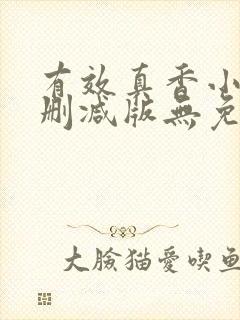 有效真香小
删减版無免
大臉猫愛喫鱼